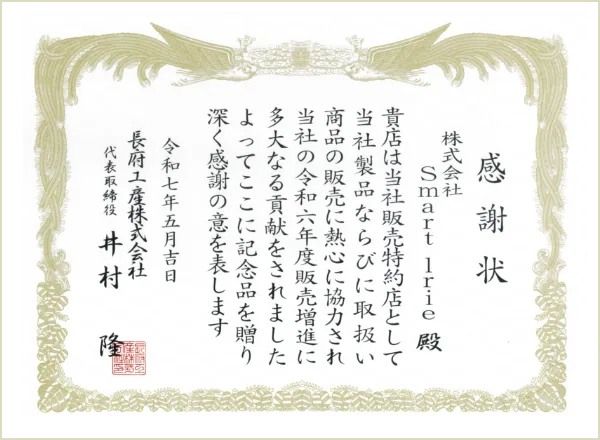 感謝状
株式会社
Smart lrie 殿
貴店は当社販売特約店として
当社製品ならびに取扱い
商品の販売に熱心に協力され
当社の令和六年度販売増進に
多大なる貢献をされました
よってここに記念品を贈り
深く感謝の意を表します
令和七年五月吉日
長府工産株式会社
代表取締役 井村 隆